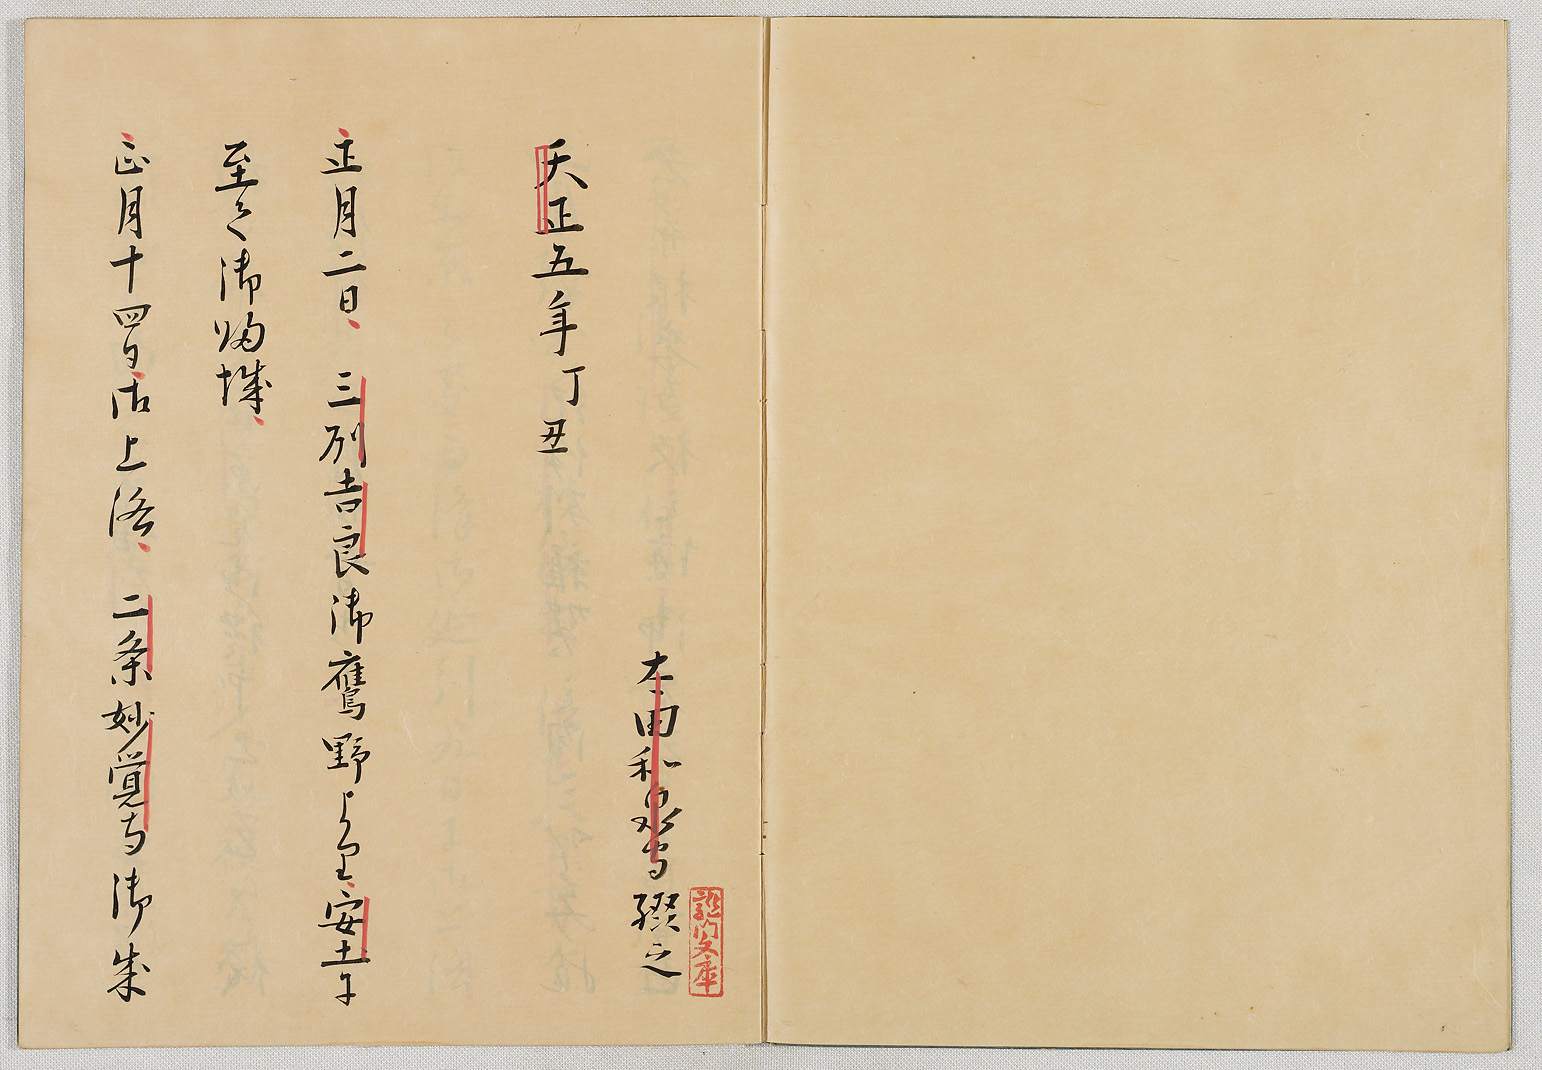 太田和泉守綴之
龍門文庫
天正五年丁丑
正月二日、三州吉良御鷹野より安土ニ
至て御帰城、
正月十四日御上洛、二条妙覚寺御成